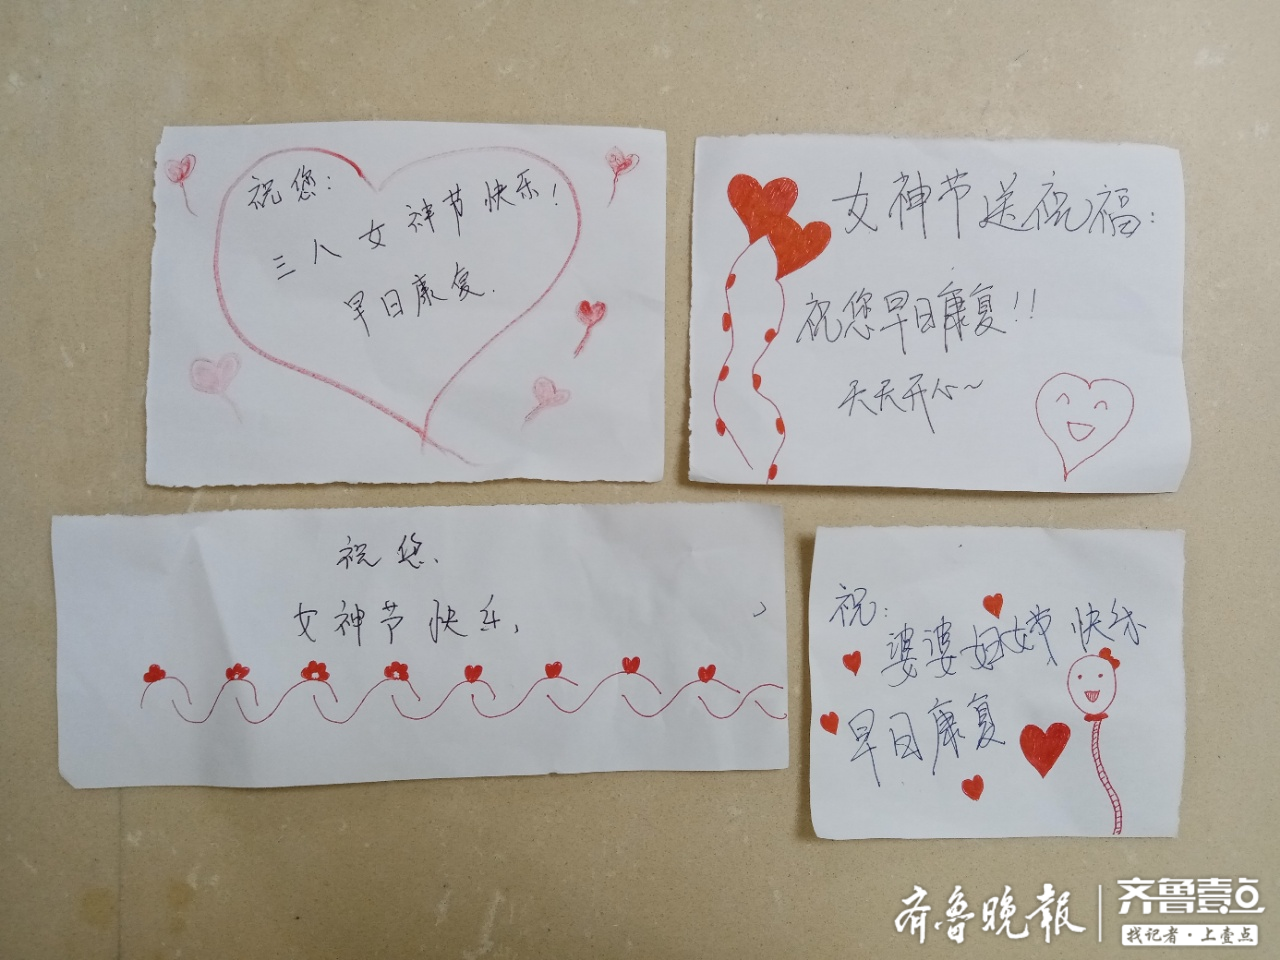 祝您:
三八女神节快乐!
早日康复.
女神节送祝福:
祝您早日康复!!
天天开心~
祝您、
女神节快乐,
祝:
婆婆妇女节快乐
早日康复
齐鲁晚报
齐鲁壹点
找记者·上壹点